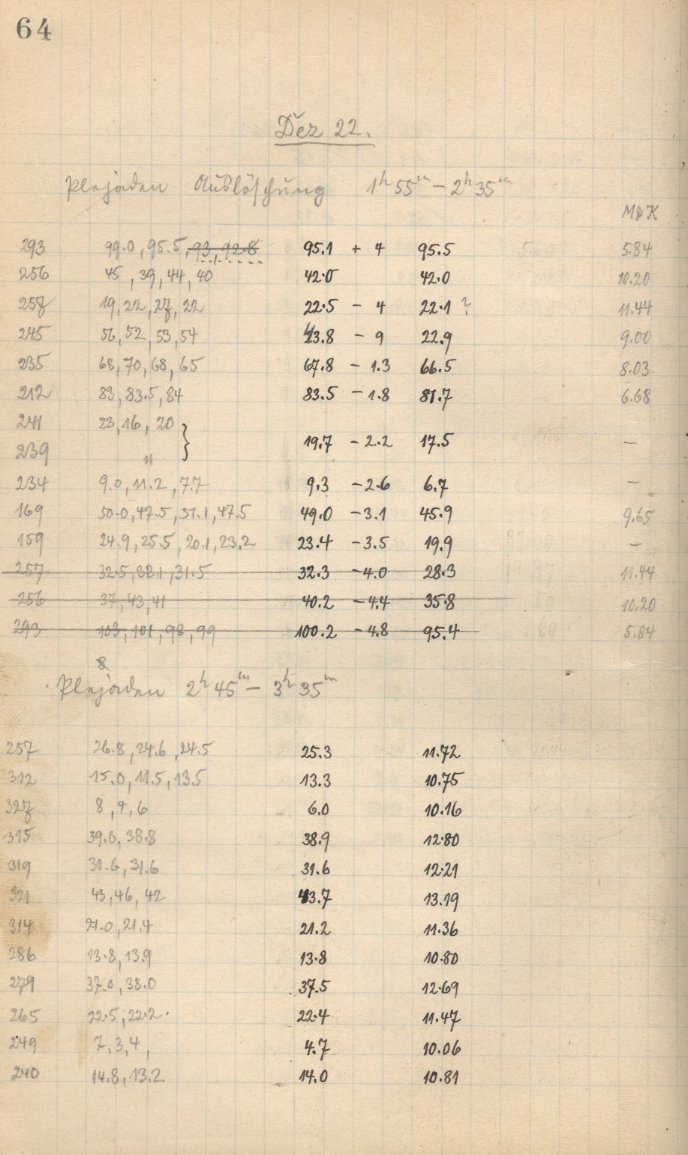 64
Dez 22.
Plejaden Auslöschung 1h 55m – 2h 35m
M&K
293 99.0, 95.5, 93, 92.8 95.1 + 4 95.5 5.84
256 45, 39, 44, 40 42.0 42.0 10.20
257 19, 22, 27, 22 22.5 – 4 22.1 ? 11.44
245 56, 52, 53, 54 – 9 22.9 9.00
235 68, 70, 68, 65 67.8 – 1.3 66.5 8.03
212 83, 83.5, 84 83.5 – 1.8 81.7 6.68
241 23, 16, 20
239 " } 19.7 – 2.2 17.5 –
234 9.0, 11.2, 7.7 9.3 – 2.6 6.7 –
169 50.0, 47.5, 51.1, 47.5 49.0 – 3.1 45.9 9.65
159 24.9, 25.5, 20.1, 23.2 23.4 – 3.5 19.9 –
257 32.5, 32.1, 31.5 32.3 – 4.0 28.3 11.44
256 37, 43, 41 40.2 – 4.4 35.8 10.20
293 103, 101, 98, 99 100.2 – 4.8 95.4 5.84
Plejaden 2h 45m – 3h 35m
257 26.8, 24.6, 24.5 25.3 11.72
312 15.0, 11.5, 13.5 13.3 10.75
327 8, 4, 6 6.0 10.16
315 39.0, 38.8 38.9 12.80
319 31.6, 31.6 31.6 12.21
321 43, 46, 42 43.7 13.19
314 21.0, 21.4 21.2 11.36
286 13.8, 13.9 13.8 10.80
279 37.0, 38.0 37.5 12.69
265 22.5, 22.2 22.4 11.47
249 7, 3, 4, 4.7 10.06
240 14.8, 13.2 14.0 10.81